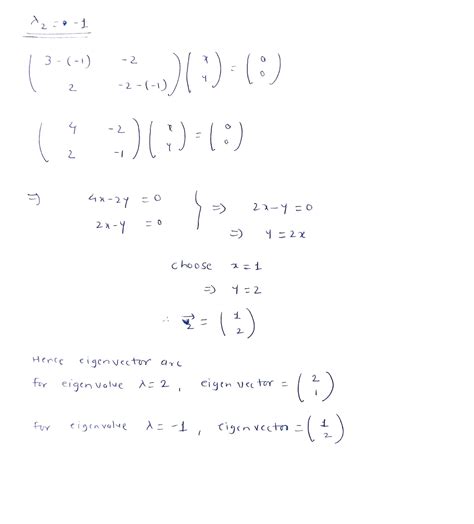 λ₂ = -1
( 3-(-1)  -2 ; 2  -2-(-1) ) ( x ; y ) = ( 0 ; 0 )
( 4  -2 ; 2  -1 ) ( x ; y ) = ( 0 ; 0 )
⇒ 4x-2y = 0
2x-y = 0 } ⇒ 2x-y = 0
⇒ y = 2x
choose x = 1
⇒ y = 2
∴ v⃗₂ = ( 1 ; 2 )
Hence eigenvector are
for eigenvalue λ = 2, eigenvector = ( 2 ; 1 )
for eigenvalue λ = -1, eigenvector = ( 1 ; 2 )